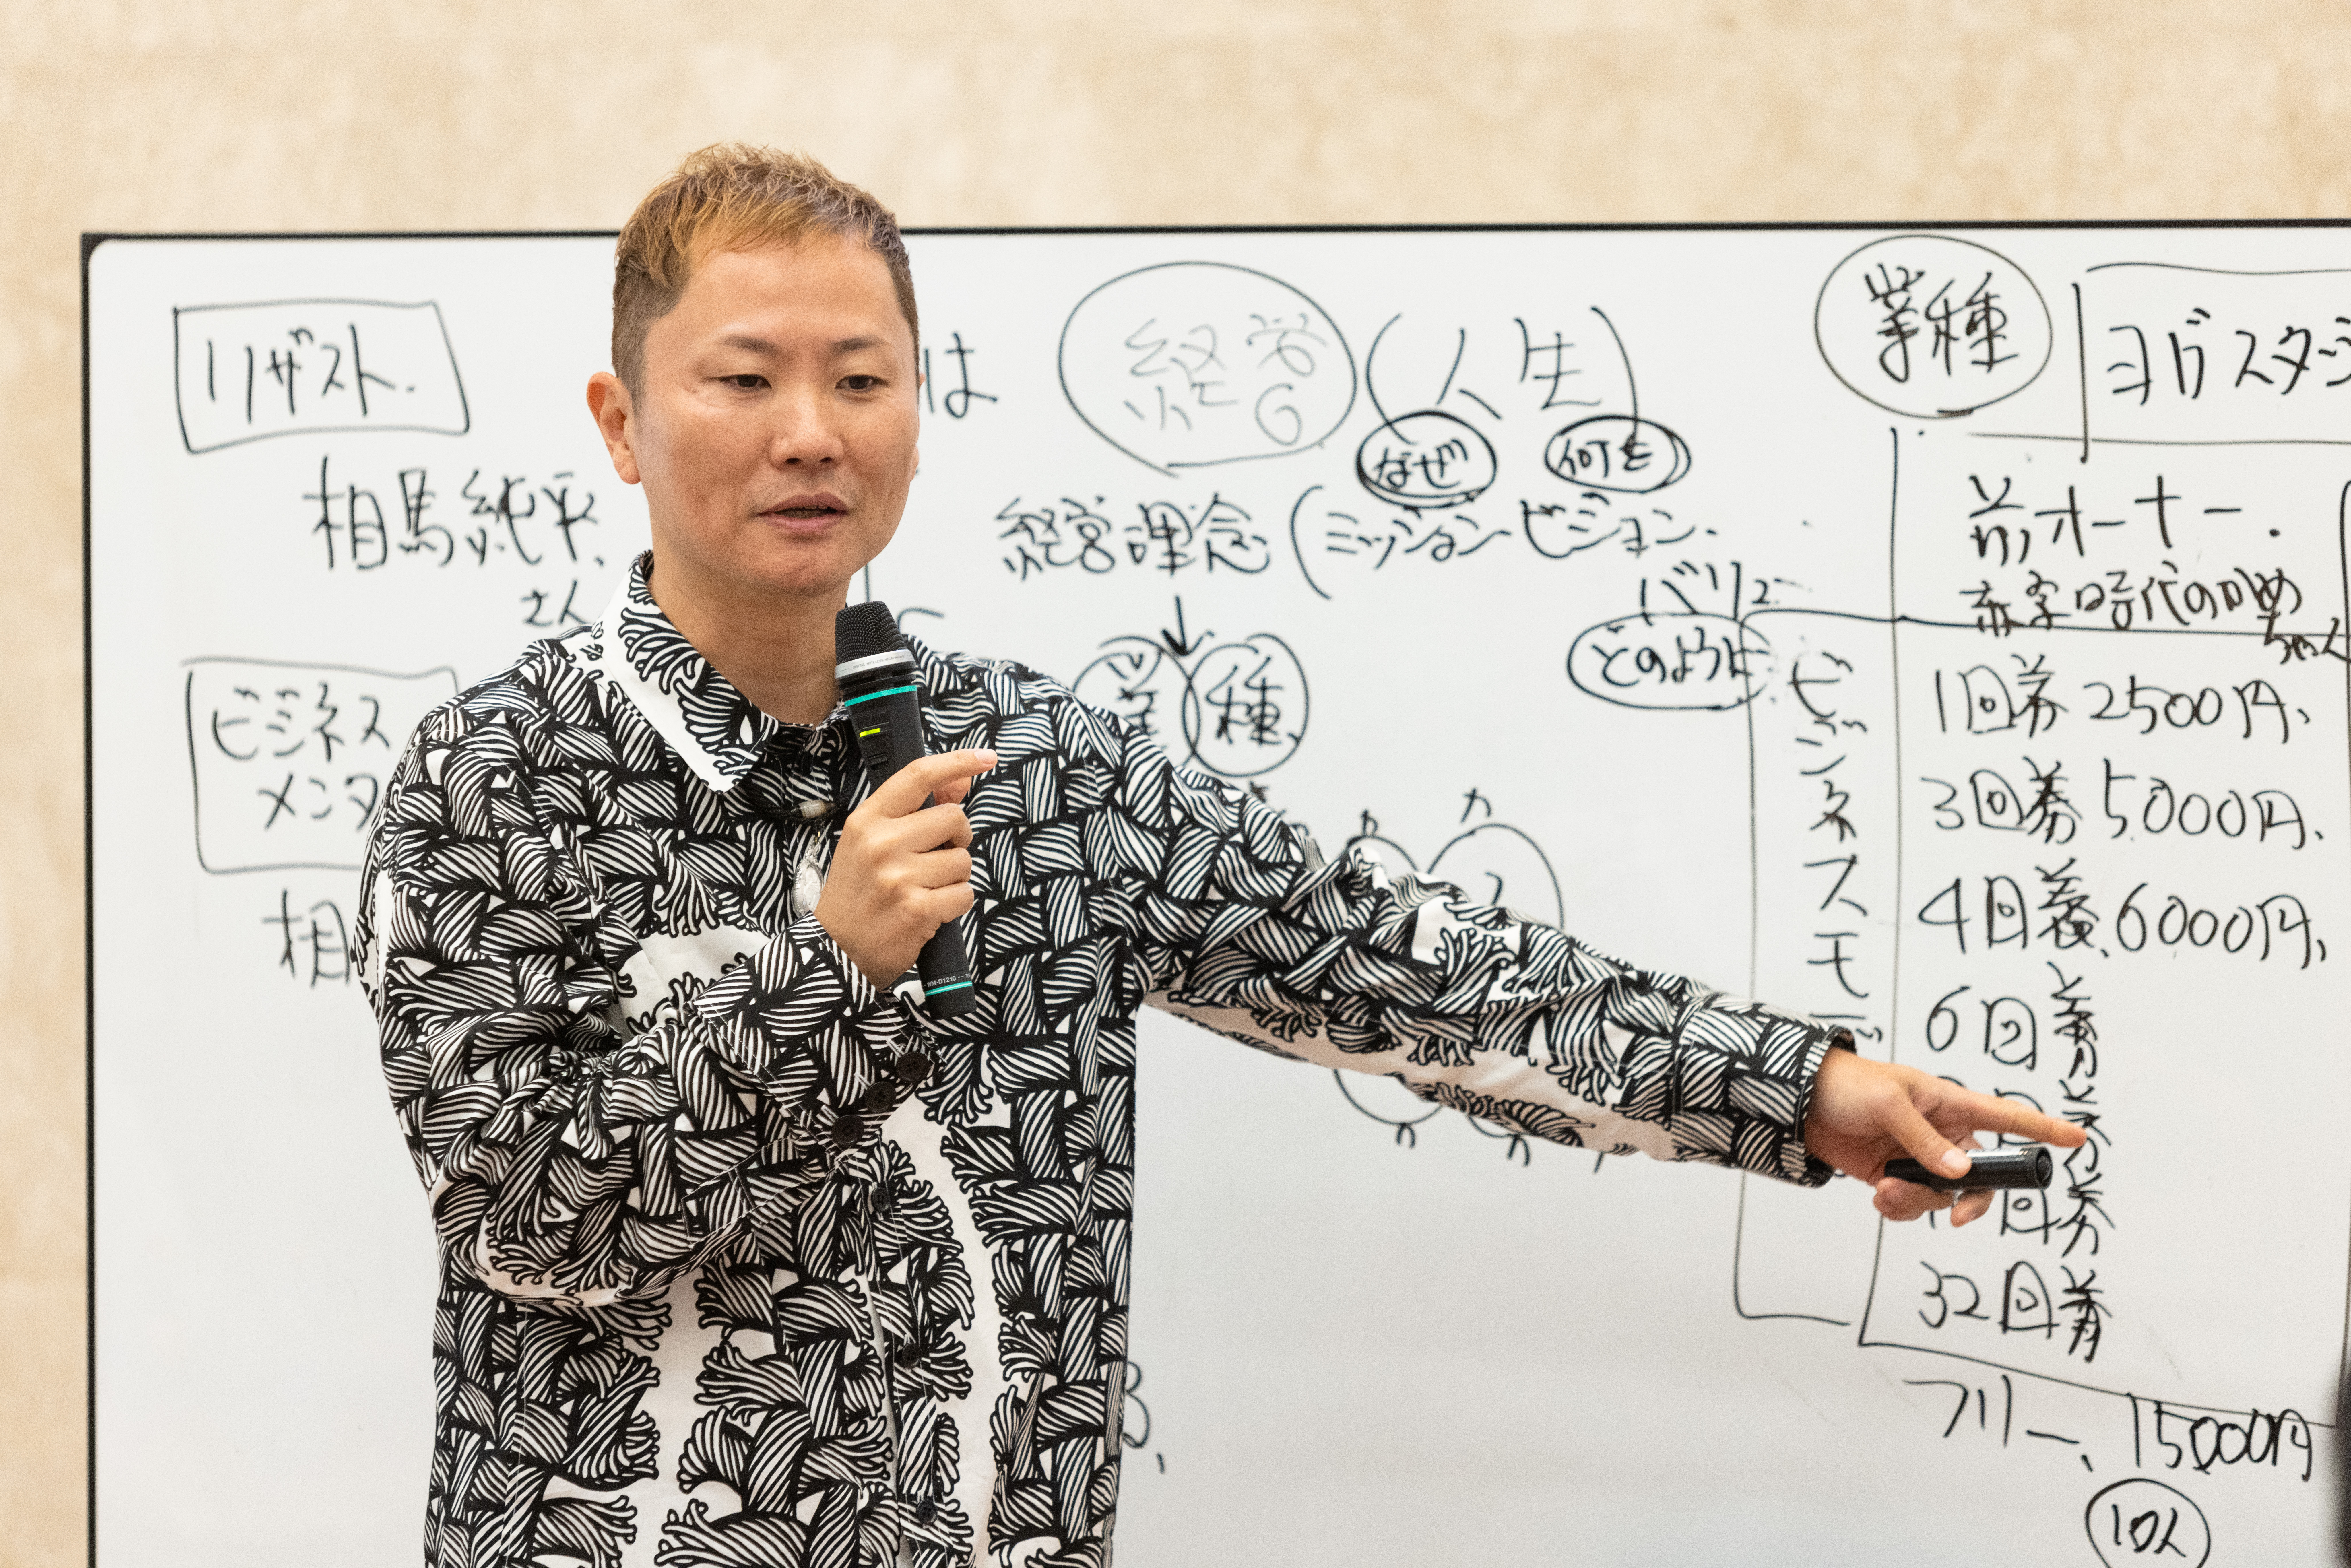 リザスト.
相馬純平、
さん
ビジネス
メンタ
相
は
経営
(人生)
なぜ
何を
経営理念(ミッション ビジョン.
バリュー
どのように
業種
業種
ヨガスタジ
前オーナー.
赤字時代のかめ
ちゃん
ビジネスモデ
1回券 2500円、
3回券 5000円、
4回券、6000円、
6回券
回券
32回券
フリー、15000円
10人
WM-D1210